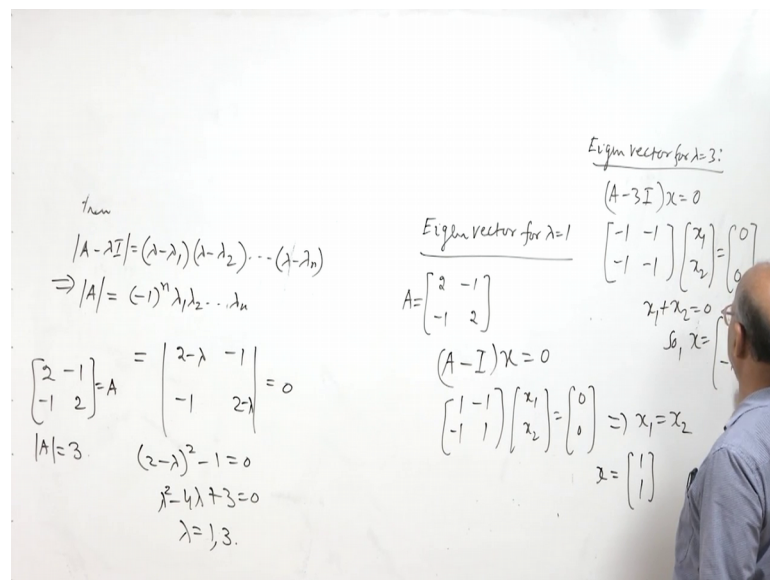 then
|A-λI|=(λ-λ₁)(λ-λ₂)...(λ-λₙ)
⇒|A|= (-1)ⁿ λ₁λ₂...λₙ
[2 -1; -1 2]=A
|A|=3.
= |2-λ -1; -1 2-λ| = 0
(2-λ)²-1=0
λ²-4λ+3=0
λ=1,3.
Eigen vector for λ=1
A=[2 -1; -1 2]
(A-I)x=0
[1 -1; -1 1][x₁; x₂]=[0; 0] ⇒ x₁=x₂
x=[1; 1]
Eigen vector for λ=3:
(A-3I)x=0
[-1 -1; -1 -1][x₁; x₂]=[0; 0]
x₁+x₂=0
So, x=[